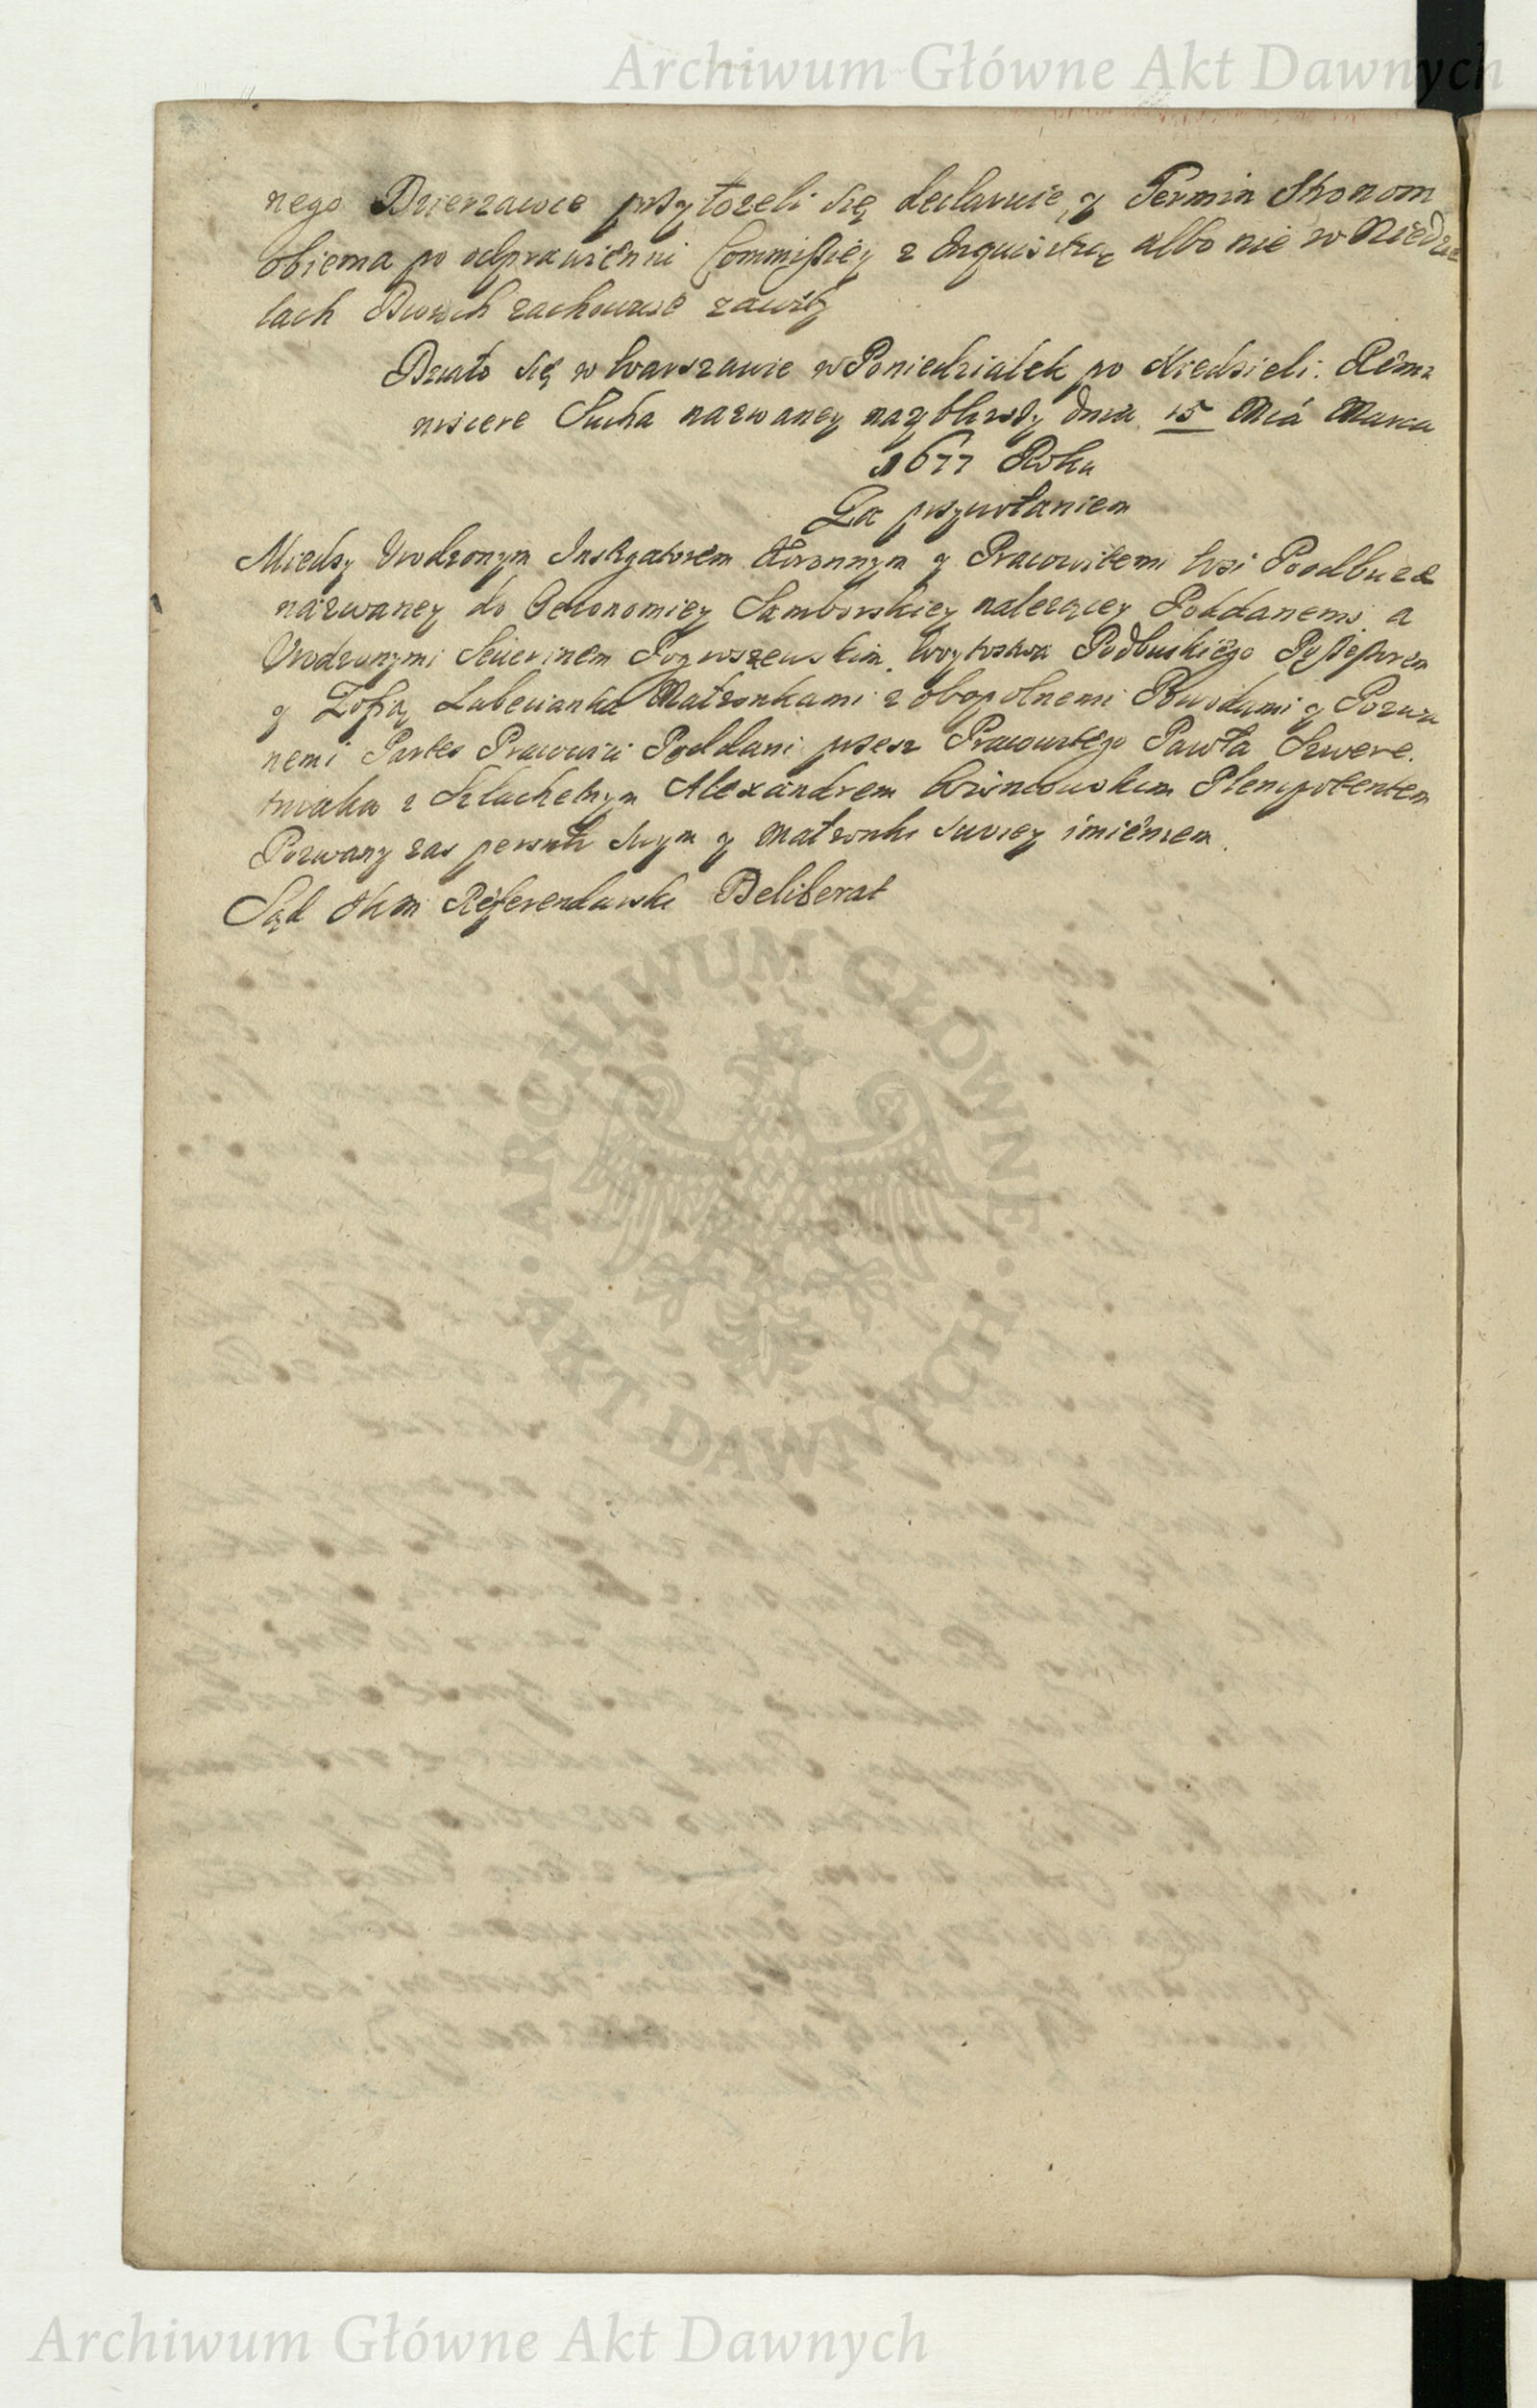 Archiwum Główne Akt Dawnych
nego Dzierzawce przytozeli się declaruie, y Termin Stronom
obiema po odprawieniu Commissiey z Inquisitią albo nie w Niedzie
lach Dwoch zachowuie zawity
Działo się w Warszawie w Poniedziałek po Niedzieli Remi
niscere Sucha nazwaney nazbliższy dnia 15 Mca Marca
1677 Roku
Za przywołaniem
Miedzy Urodzonym Instygatorem Koronnym y Pracowitemi Wsi Poodbuze
nazwaney do Oeconomiey Samborskiey należącey Poddanemi a
Urodzonymi Sewerinem Woytostwa Podbuskiego Possessorem
y Zofią Małzonkami z obopolnemi Powodami y Pozwa
nemi Partes Pracowici Poddani przez Pracowitego Pawła Szwere.
tniaka z Szlachetnym Alexandrem Wisniowskim Plenipotentem
Pozwany zas persona swym y małzonki swoiey imieniem.
Sąd KM Referendarski Deliberat
ARCHIWUM GŁÓWNE AKT DAWNYCH
Archiwum Główne Akt Dawnych